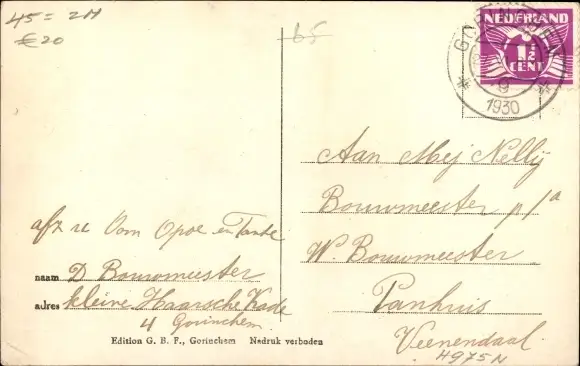 45 = 2M
€20
65
NEDERLAND
1½
CENT
GORINCHEM
1930
Aan Mej Nelly
Bouwmeester p/a
W. Bouwmeester
Panhuis
Veenendaal
4975N
afz u Oom Opoe en Tante
naam D Bouwmeester
adres kleine Haarsche Kade
4 Gorinchem
Edition G. B. F., Gorinchem Nedruk verboden